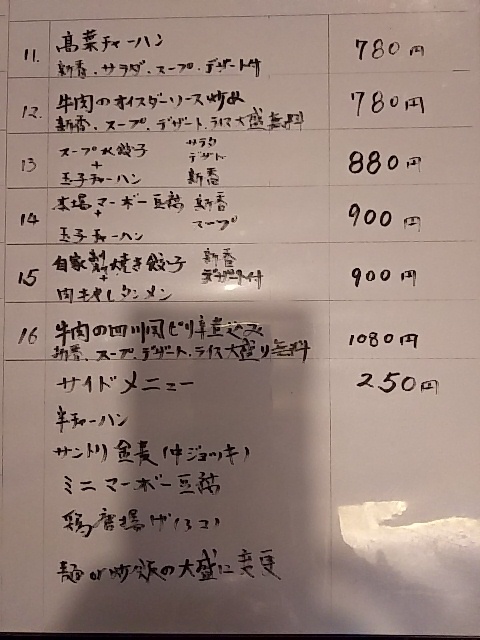 11. 高菜チャーハン 780円
新香.サラダ.スープ.デザート付
12. 牛肉のオイスターソース炒め 780円
新香.スープ.デザート.ライス大盛無料
13 スープ水餃子 サラダ 880円
+ デザート
玉子チャーハン 新香
14 本場マーボー豆腐 新香 900円
+ スープ
玉子チャーハン
15 自家製焼き餃子 新香 900円
+ デザート付
肉モヤシタンメン
16 牛肉の四川風ピリ辛煮込み 1080円
新香.スープ.デザート.ライス大盛り無料
サイドメニュー 250円
半チャーハン
サントリ金麦(中ジョッキ)
ミニマーボー豆腐
鶏唐揚げ(3コ)
麺or炒飯の大盛に変更